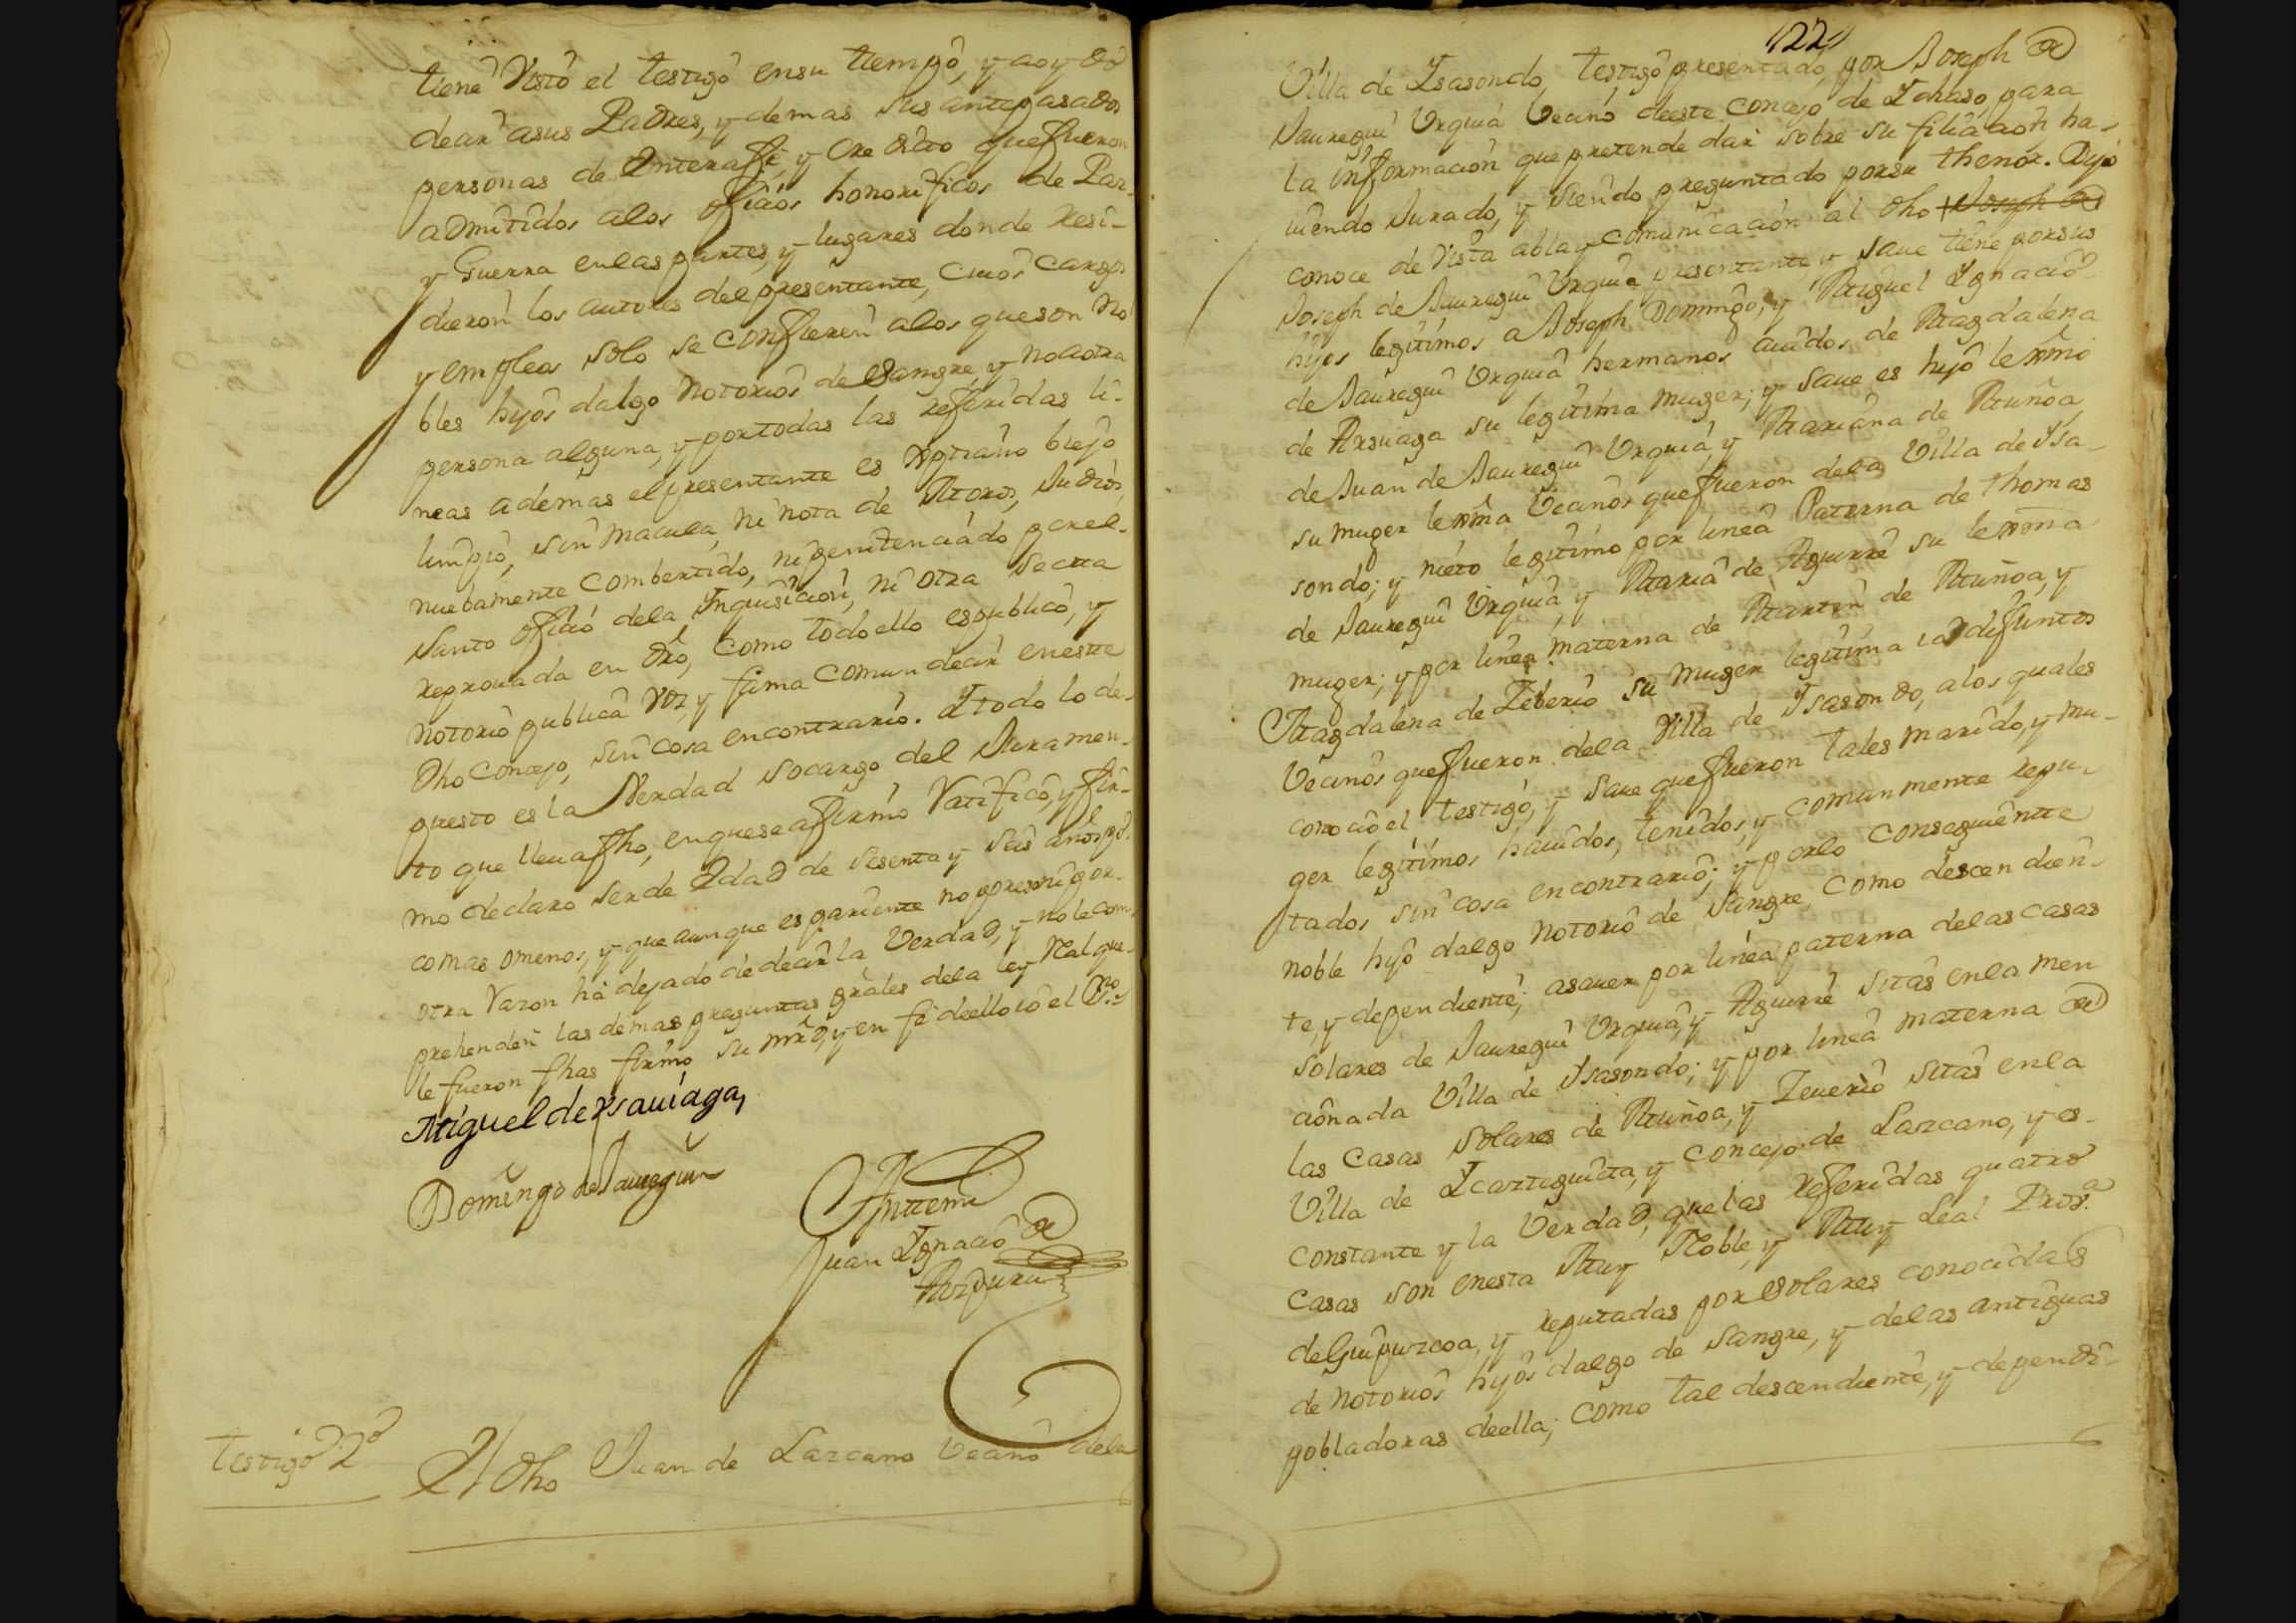 tiene Visto el testigo ensu tiempo, y aoydo
decir asus Padres, y demas sus antepasados
personas de Entera fe, y Credito que fueron
admitidos alos oficios honorificos de Paz
y Guerra enlas partes, y lugares donde Resi-
dieron los autores del presentante, Cuios Cargos
y empleos solo se confieren alos queson No
bles hijos dalgo Notorios de Sangre y no aotra
persona alguna, y portodas las referidas li-
neas ademas el presentante es Xptiano biejo
limpio, sin macula, ni nota de Moros, Judios,
nuebamente Combertido, ni penitenciado porel-
Santo oficio dela Inquisicion, ni otra Secta
reprouada en dro, Como todo ello espublico, y
notorio publica Voz, y fama Comun decir eneste
Dho Concejo, sin Cosa encontrario. Y todo lo de-
puesto es la Verdad Socargo del Juramen-
to que lleua fho, enquese affirmo Ratifico, y fir-
mo declaro serde Edad de Sesenta y Seis años po-
comas omenos, y que aunque es pariente no poreso ni por-
otra Razon ha dejado de decir la Verdad, y nole com
prehenden las demas preguntas grales dela ley Real que-
le fueron fhas firmo su mrd, y en fe deello io el Sno
Miguel de Ysauiaga,
Domingo de Jauregui
Antemi
Juan Ignacio de
Aizpuru
testigo 2º
El Dho Juan de Lazcano Vecino dela
122
Villa de Isasondo, testigo presentado, por Joseph de
Jauregui Urquia Vecino deeste Concejo de Ichaso para
la informacion que pretende dar sobre su filiacion ha-
uiendo Jurado, y siendo preguntado porsu thenor. Dijo
conoce de Vista abla y comunicacion al dho Joseph de
Joseph de Jauregui Urquia presentante y saue tiene porsus
hijos legitimos a Joseph Domingo, y Miguel Ignacio
de Jauregui Urquia hermanos auidos de Magdalena
de Arsuaga su legitima muger; y saue es hijo lexmo
de Juan de Jauregui Urquia, y Mariana de Muñoa
su muger lexma Vecinos que fueron dela Villa de Isa-
sondo; y nieto legitimo por linea Paterna de thomas
de Jauregui Urquia y Maria de Aguirre su lexma
muger; y por linea materna de Martin de Muñoa, y
Magdalena de Zeberio su muger legitima ia difuntos
Vecinos que fueron dela Villa de Isasondo, alos quales
conocio el testigo, y saue que fueron tales marido, y mu-
ger legitimos hauidos, tenidos, y comunmente repu-
tados sin cosa encontrario; y porlo consequiente
noble hijo dalgo notorio de Sangre, como descendien-
te, y dependiente; asauer por linea paterna delas casas
solares de Jauregui Urquia, y Aguirre sitas enla men
cionada Villa de Isasondo; y por linea materna de
las Casas Solares de Muñoa, y Zeuerio sitas enla
Villa de Icazteguieta, y Concejo de Lazcano, y es-
constante y la Verdad, que las referidas quatro
Casas son enesta Muy Noble, y Muy Leal Prova
de Guipuzcoa, y reputadas por Solares conocidas
de notorios hijos dalgo de Sangre, y delas antiguas
pobladoras deella; como tal descendiente, y dependi-